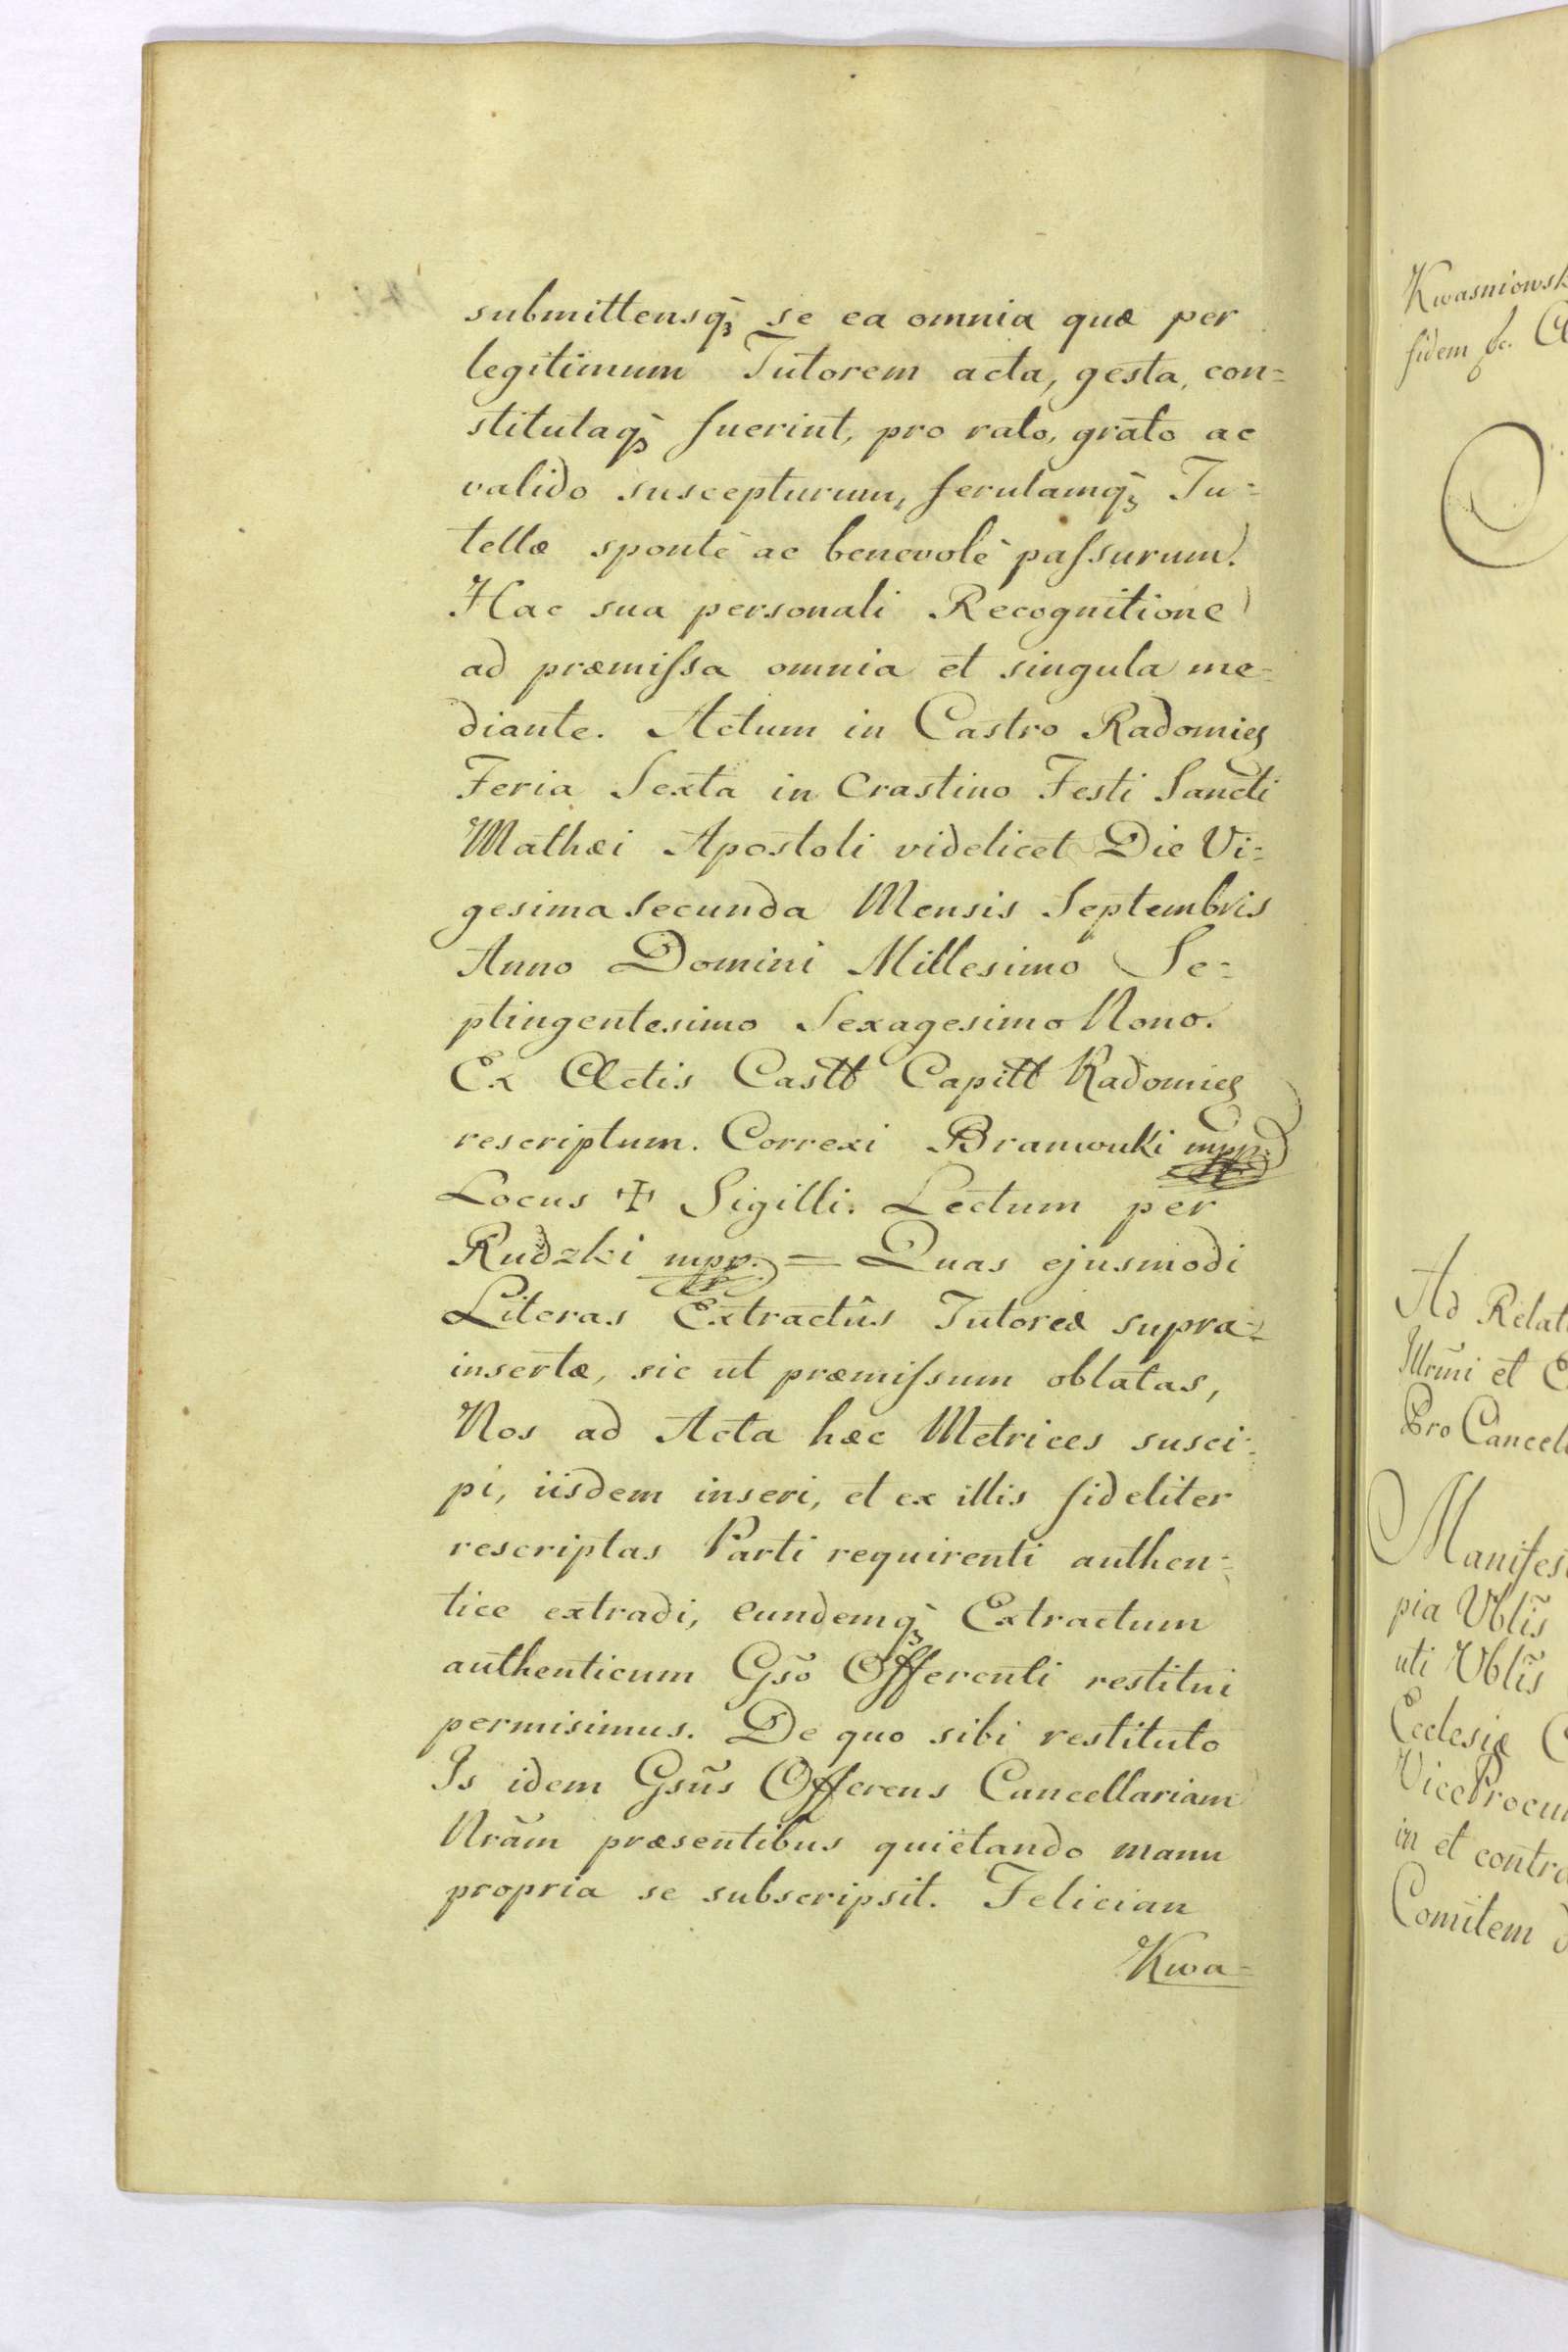 submittensq̀ꝫ se ea omnia quæ per
legitimum Tutorem acta, gesta, con=
stitutaq̀ꝫ fuerint, pro rato, grato ac
valido suscepturum, ferulamq̀ꝫ Tu=
tellæ spontè ac benevolè paſsurum.
Hac sua personali Recognitione
ad præmiſsa omnia et singula me=
diante. Actum in Castro Radomieꝫ
Feria Sexta in Crastino Festi Sancti
Mathæi Apostoli videlicet Die Vi=
gesima secunda Mensis Septembris
Anno Domini Millesimo Se=
ptingentesimo Sexagesimo Nono.
Ex Actis Castt Capitt Radomieꝫ
rescriptum. Correxi mpp.
Locus ✝ Sigilli. Lectum per
Rudzki mpp. = Quas ejusmodi
Literas Extractûs Tutoreæ supra=
insertæ, sic ut præmiſsum oblatas,
Nos ad Acta hæc Metrices susci=
pi, iisdem inseri, et ex illis fideliter
rescriptas Parti requirenti authen=
tice extradi, eundemq̀ꝫ Extractum
authenticum Gs̃o Offerenti restitui
permisimus. De quo sibi restituto
Is idem Gsũs Offerens Cancellariam
Nrãm præsentibus quietando manu
propria se subscripsit. Felician
Kwa=
Kwasniowsk
fidem &c.
Ad Relat
Illrm̃i et
Pro Cancel
Manifest
pia Vbl̃is
uti Vbl̃is
Ecclesiæ
ViceProcu
in et contra
Comitem